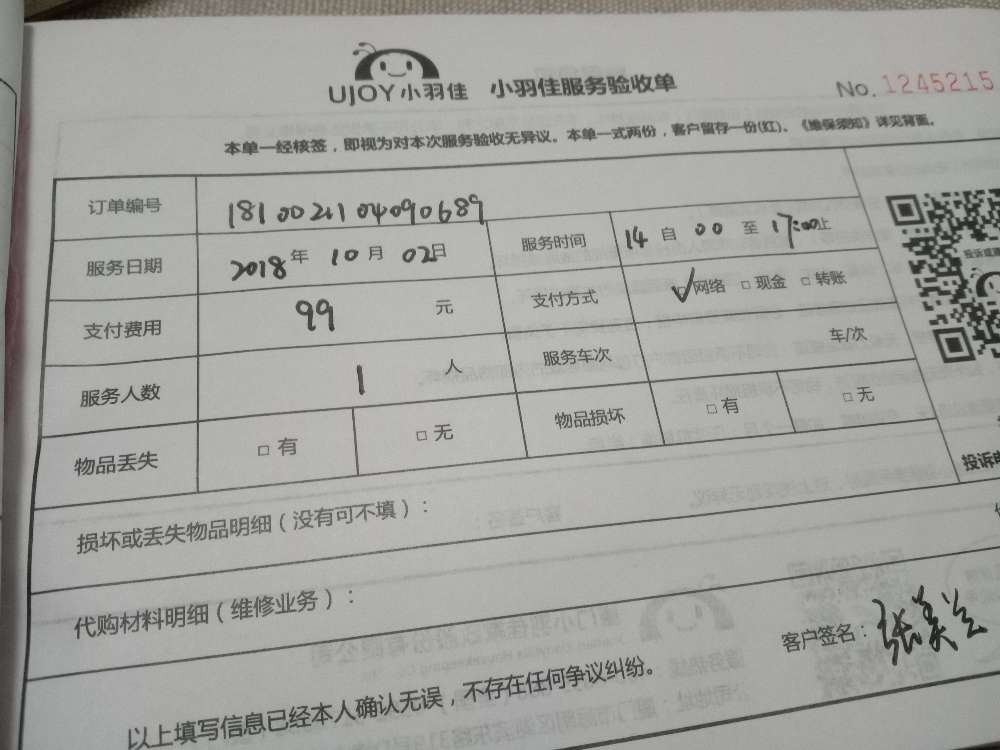 UJOY小羽佳 小羽佳服务验收单 No. 1245215
本单一经核签，即视为对本次服务验收无异议。本单一式两份，客户留存一份(红)。《维保须知》详见背面。
订单编号 1810021104090689
服务日期 2018年 10月 02日 服务时间 14 自 00 至 17:00止
支付费用 99 元 支付方式 ✓□网络 □现金 □转账
服务人数 1 人 服务车次 车/次
物品丢失 □有 □无 物品损坏 □有 □无
损坏或丢失物品明细（没有可不填）：
代购材料明细（维修业务）：
客户签名：张美兰
以上填写信息已经本人确认无误，不存在任何争议纠纷。